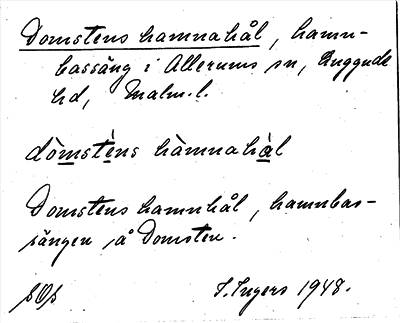 Domstens hamnahål, hamn-
bassäng i Allerums sn, Luggude
hd, Malm. l.
dòmstèns hàmnahàl
Domstens hamnhål, hamnbas-
sängen å Domsten.
I. Ingers 1948.